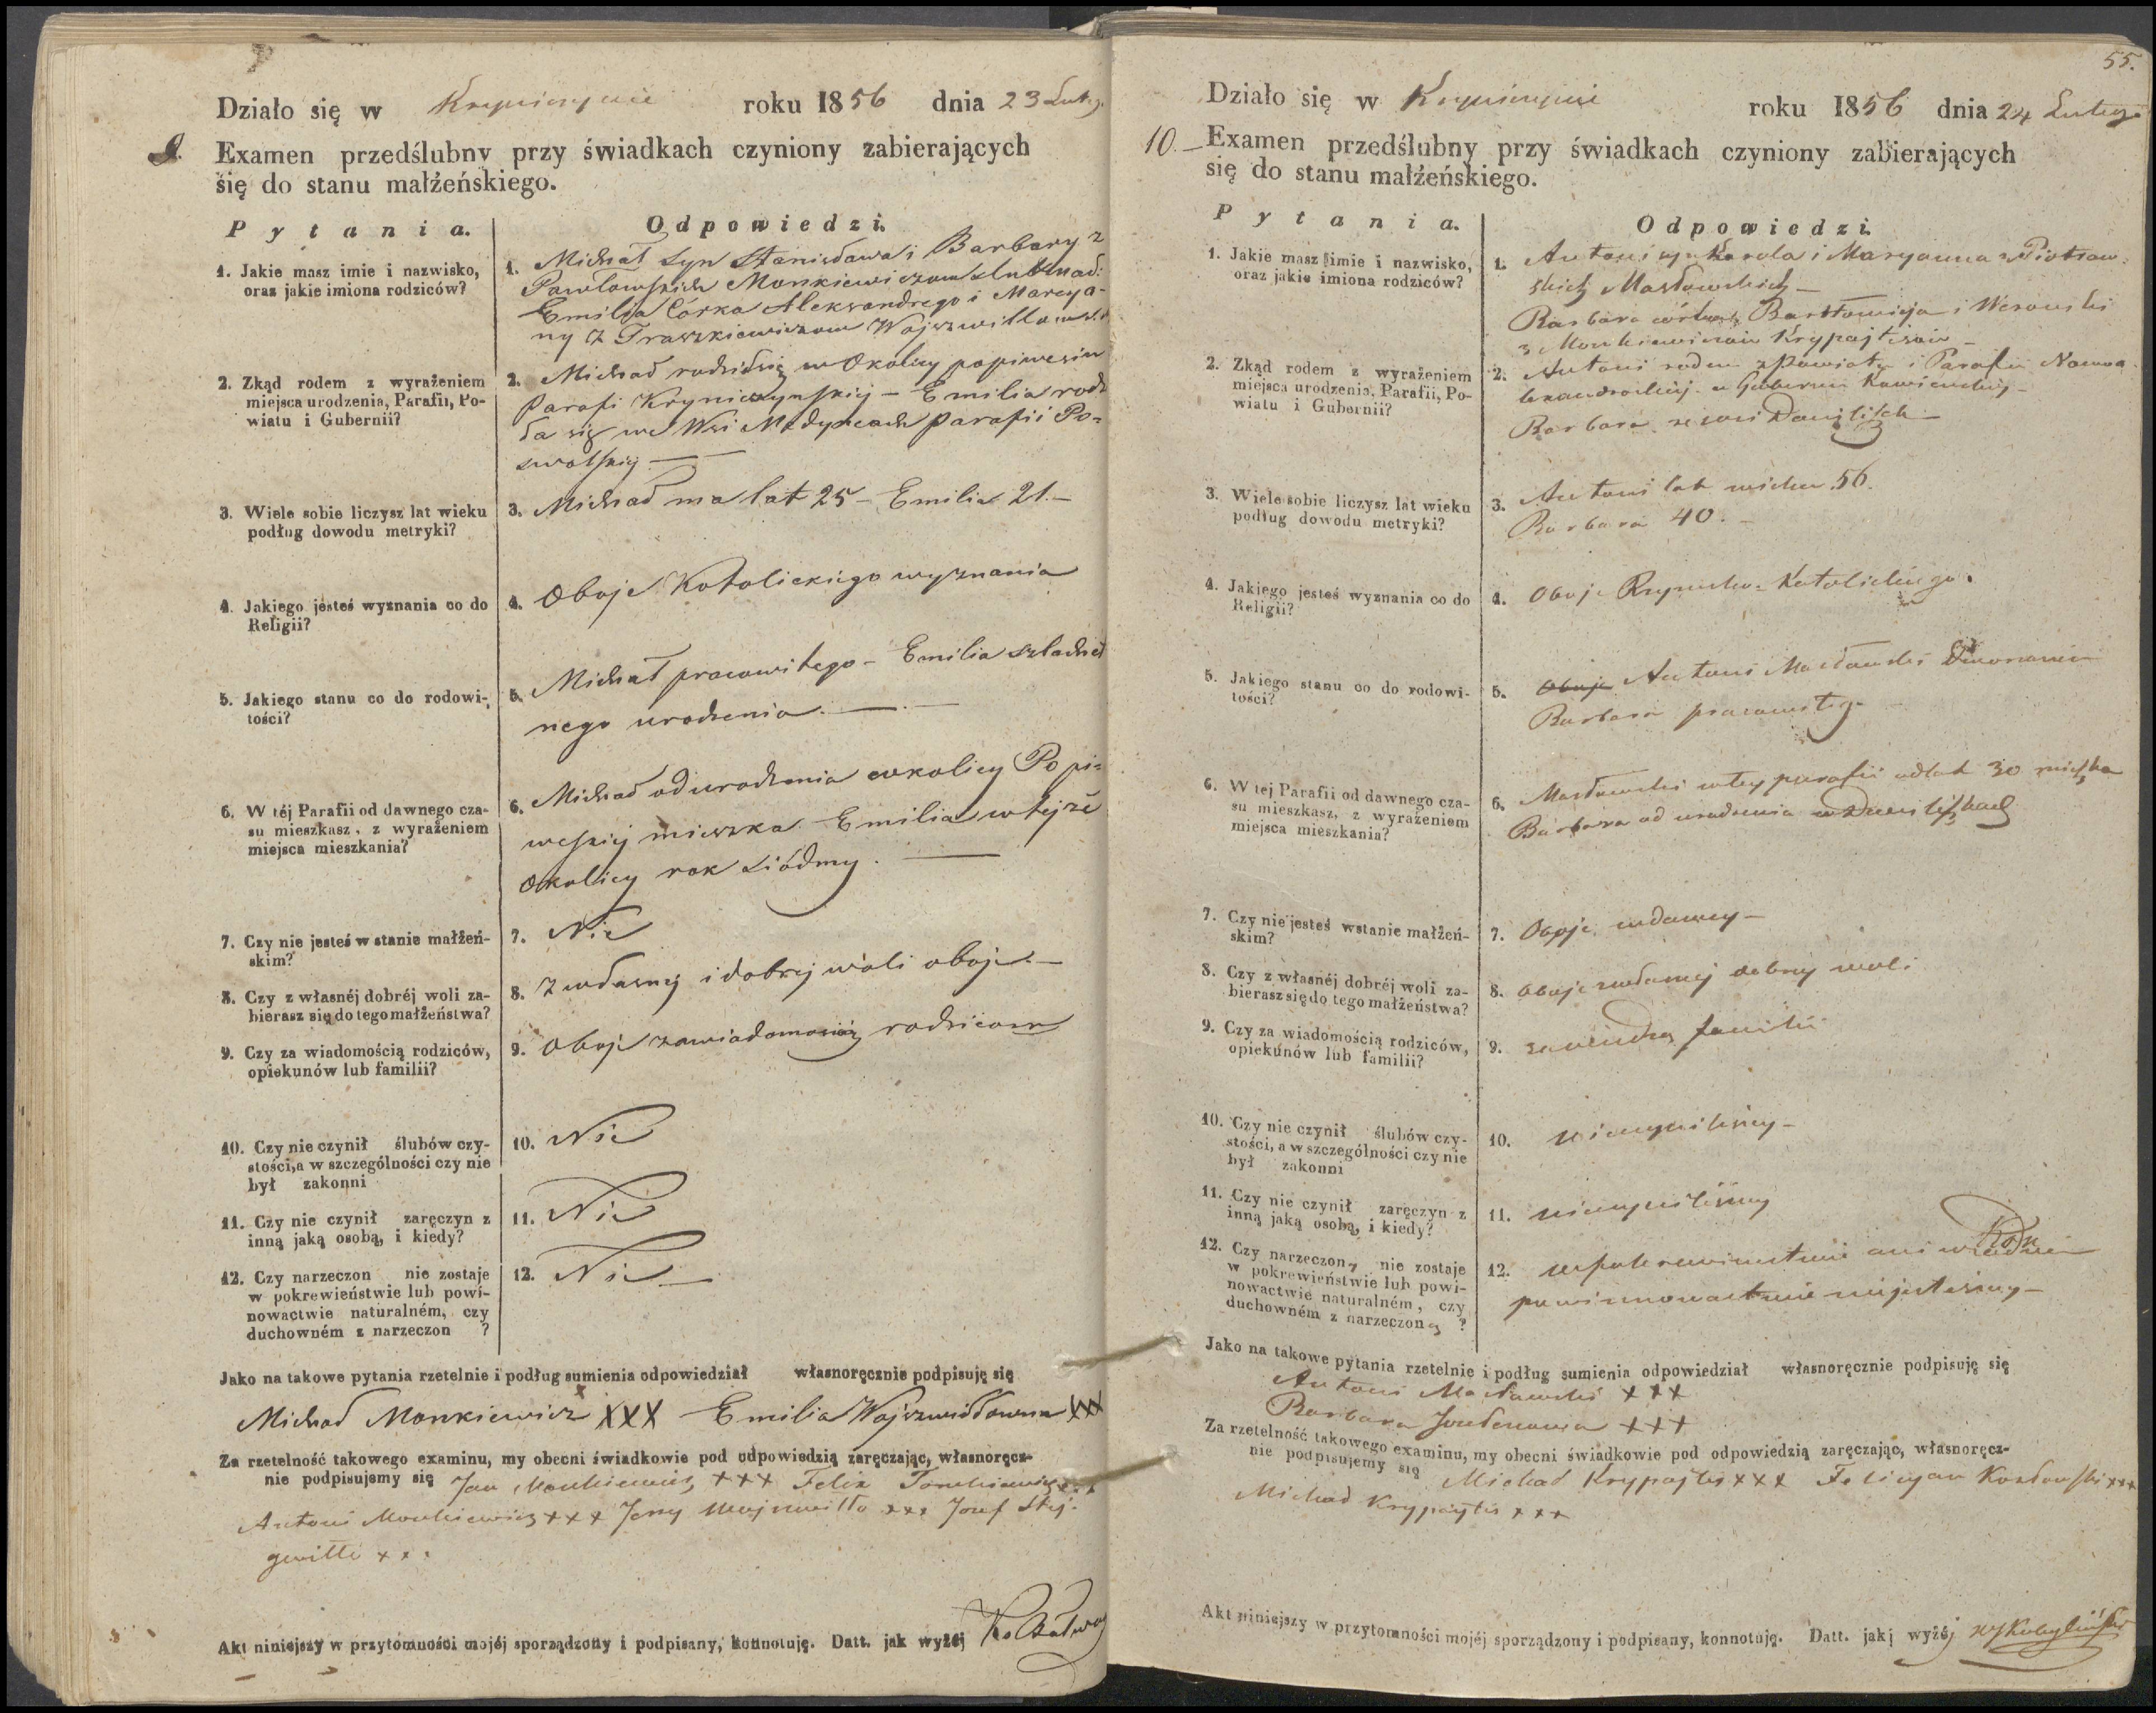 Działo się w Krynicznie roku 1856 dnia 23 Luteg.
9. Examen przedślubny przy świadkach czyniony zabierających
się do stanu małżeńskiego.
Pytania. Odpowiedzi.
1. Jakie masz imie i nazwisko,
oraz jakie imiona rodziców?
1. Michał Syn Stanisława i Barbary z
Pawłowskich Monkiewiczow
Emilia Córka Alexandrego i Marcya-
ny z Traszkiewiczow Wojszwiłłow
2. Zkąd rodem z wyrażeniem
miejsca urodzenia, Parafii, Po-
wiatu i Gubernii?
2. Michał rodził się w Okolicy
Parafi Kryniczynskiej – Emilia rodzi
ła się we Wsi Medyncach parafii Po-
swolskiej —
3. Wiele sobie liczysz lat wieku
podług dowodu metryki?
3. Michał ma lat 25 – Emilia 21. –
4. Jakiego jesteś wyznania co do
Religii?
4. Oboje Katolickiego wyznania
5. Jakiego stanu co do rodowi-
tości?
5. Michał pracowitego – Emilia szlachet
nego urodzenia. —
6. W téj Parafii od dawnego cza-
su mieszkasz, z wyrażeniem
miejsca mieszkania?
6. Michał od urodzenia w okolicy Popi-
weskiej mieszka. Emilia w tejże
Okolicy rok siódmy. —
7. Czy nie jesteś w stanie małżeń-
skim?
7. Nie
8. Czy z własnéj dobréj woli za-
bierasz się do tego małżeństwa?
8. Z własnej i dobrej woli oboje. –
9. Czy za wiadomością rodziców,
opiekunów lub familii?
9. Oboje za wiadomością rodzicow
10. Czy nie czynił ślubów czy-
stości, a w szczególności czy nie
był zakonni
10. Nie
11. Czy nie czynił zaręczyn z
inną jaką osobą, i kiedy?
11. Nie
12. Czy narzeczon nie zostaje
w pokrewieństwie lub powi-
nowactwie naturalném, czy
duchowném z narzeczon ?
12. Nie —
Jako na takowe pytania rzetelnie i podług sumienia odpowiedział własnoręcznie podpisuję się
Michał Monkiewicz XXX Emilia Wojszwiłłowna XXX
Za rzetelność takowego examinu, my obecni świadkowie pod odpowiedzią zaręczając, własnoręcz-
nie podpisujemy się Jan Monkiewicz +++ Felix Tomkiewicz
Antoni Monkiewicz +++ Jerzy Wojszwiłło +++ Jozef Skij-
gwiłło +++
Akt niniejszy w przytomności mojéj sporządzony i podpisany, konnotuję. Datt. jak wyżéj
55.
Działo się w Krynicznie roku 1856 dnia 24 Lutego
10. – Examen przedślubny przy świadkach czyniony zabierających
się do stanu małżeńskiego.
Pytania. Odpowiedzi.
1. Jakie masz imie i nazwisko,
oraz jakie imiona rodziców?
1. Antoni syn Karola i Maryanna z Piotrow-
skich Masłowskich –
Barbara córka Bartłomieja i Weroniki
z Monkiewiczow Krypajtisow –
2. Zkąd rodem z wyrażeniem
miejsca urodzenia, Parafii, Po-
wiatu i Gubernii?
2. Antoni rodem z Powiatu i Parafii Nowoa-
lexandrowskiej w Gubernii Kowienskiej –
Barbara ze wsi Daniliszek –
3. Wiele sobie liczysz lat wieku
podług dowodu metryki?
3. Antoni lat wieku 56.
Barbara 40. –
4. Jakiego jesteś wyznania co do
Religii?
4. Oboje Rzymsko-Katolickiego.
5. Jakiego stanu co do rodowi-
tości?
5. Oboje Antoni Masłowski Dworzanin
Barbara pracowitego
6. W tej Parafii od dawnego cza-
su mieszkasz, z wyrażeniem
miejsca mieszkania?
6. Masłowski w tey parafii od lat 30 mieszka
Barbara od urodzenia w Daniliszkach
7. Czy nie jesteś wstanie małżeń-
skim?
7. Oboje wdowcy –
8. Czy z własnéj dobréj woli za-
bierasz się do tego małżeństwa?
8. Oboje z własnej dobrej woli
9. Czy za wiadomością rodziców,
opiekunów lub familii?
9. za wiedzą familii
10. Czy nie czynił ślubów czy-
stości, a w szczególności czy nie
był zakonni
10. nieczyniliśmy –
11. Czy nie czynił zaręczyn z
inną jaką osobą, i kiedy?
11. nieczyniliśmy
12. Czy narzeczony nie zostaje
w pokrewieństwie lub powi-
nowactwie naturalném, czy
duchowném z narzeczoną ?
12. w pokrewienstwie ani w
powinnowactwie niejestesmy –
Jako na takowe pytania rzetelnie i podług sumienia odpowiedział własnoręcznie podpisuję się
Antoni Masłowski +++
Barbara +++
Za rzetelność takowego examinu, my obecni świadkowie pod odpowiedzią zaręczając, własnoręcz-
nie podpisujemy się Michał Krypajtis +++ Felicyan Kozłowski +++
Michał Krypajtis +++
Akt niniejszy w przytomności mojéj sporządzony i podpisany, konnotuję. Datt. jakj wyżéj